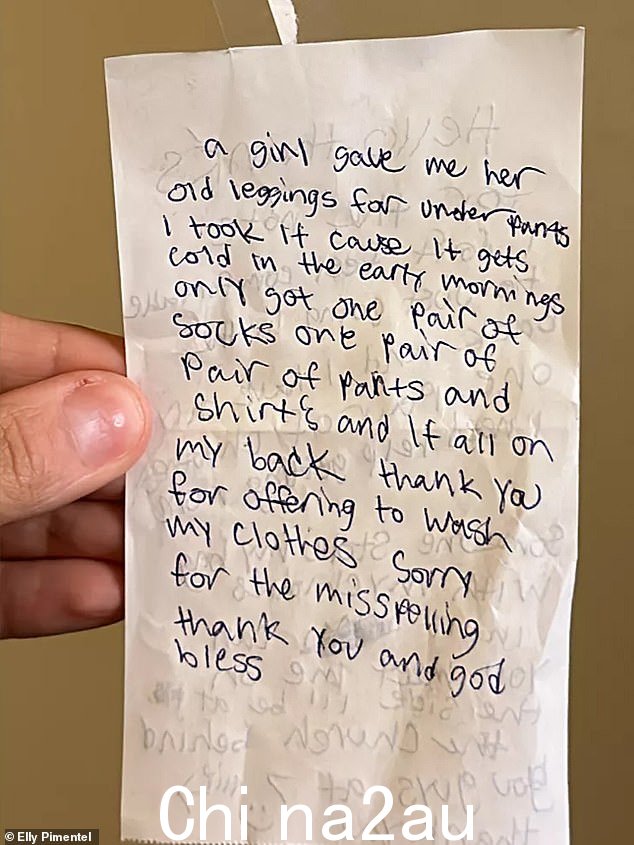 a girl gave me her
old leggings for under pants
I took it cause it gets
cold in the early mornings
only got one pair of
socks one pair of
pair of pants and
shirts and It all on
my back thank you
for offering to wash
my clothes Sorry
for the misspelling
thank you and god
bless
Chi na2au
© Elly Pimentel